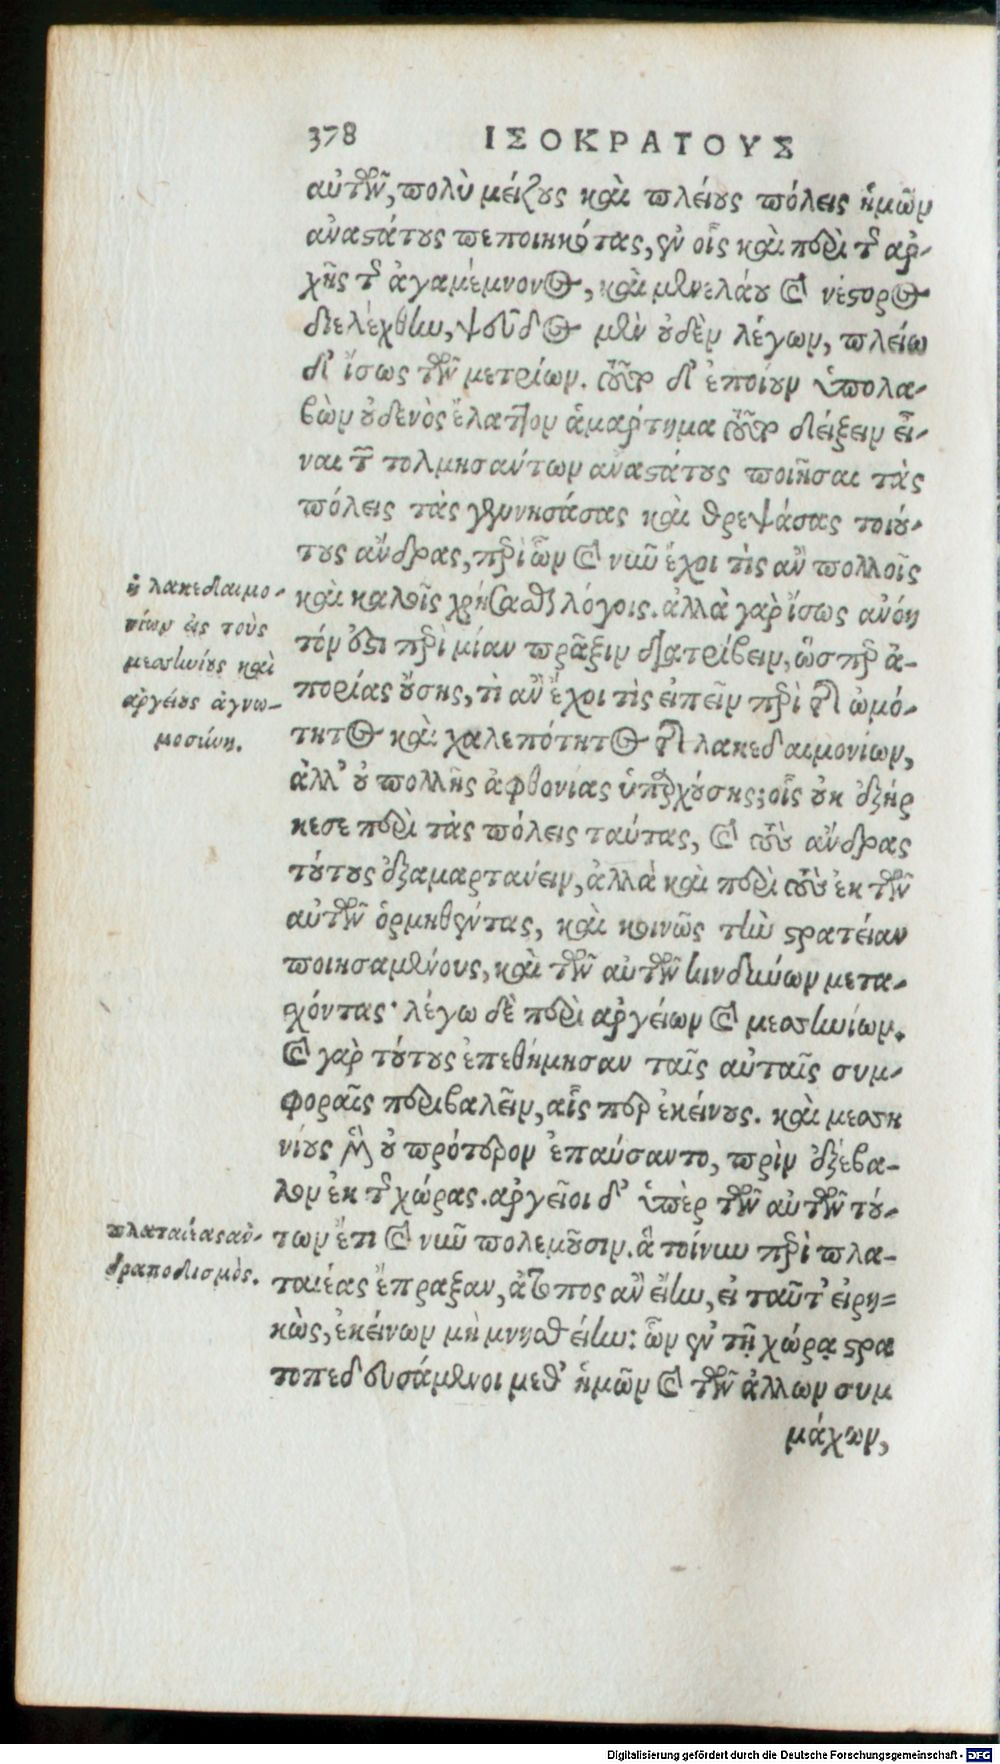 378 ΙΣΟΚΡΑΤΟΥΣ
αὐτῶν, πολὺ μείζους καὶ πλείους πόλεις ἡμῶν
ἀναστάτους πεποιηκότας, ἐν οἷς καὶ περὶ τῆς ἀρ-
χῆς τῆς ἀγαμέμνονος, καὶ μενελάου καὶ νέστορος
διελέχθην, ψεῦδος μὲν οὐδὲν λέγων, πλείω
δ' ἴσως τῶν μετρίων. τοῦτο δ' ἐποίουν ὑπολα-
βὼν οὐδενὸς ἔλαττον ἁμάρτημα τοῦτο δείξειν εἶ-
ναι τῶν τολμησάντων ἀναστάτους ποιῆσαι τὰς
πόλεις τὰς γεννησάσας καὶ θρεψάσας τοιού-
τους ἄνδρας, περὶ ὧν καὶ νῦν ἔχοι τὶς ἂν πολλοῖς
καὶ καλοῖς χρήσασθαι λόγοις. ἀλλὰ γὰρ ἴσως ἀνόη
τόν ἐστι περὶ μίαν πρᾶξιν διατρίβειν, ὥσπερ ἀ-
πορίας οὔσης, τὶ ἂν ἔχοι τὶς εἰπεῖν περὶ τῆς ὠμό-
τητος καὶ χαλεπότητος τῆς λακεδαιμονίων,
ἀλλ' οὐ πολλῆς ἀφθονίας ὑπαρχούσης; οἷς οὐκ ἐξήρ
κεσε περὶ τὰς πόλεις ταύτας, καὶ τοὺς ἄνδρας
τούτους ἐξαμαρτάνειν, ἀλλὰ καὶ περὶ τοὺς ἐκ τῶν
αὐτῶν ὁρμηθέντας, καὶ κοινῶς τὴν στρατείαν
ποιησαμένους, καὶ τῶν αὐτῶν κινδύνων μετα-
χόντας· λέγω δὲ περὶ ἀργείων καὶ μεσσηνίων.
καὶ γὰρ τούτους ἐπεθήμησαν ταῖς αὐταῖς συμ-
φοραῖς περιβαλεῖν, αἷς περ ἐκείνους. καὶ μεσση
νίους μὲν οὐ πρότερον ἐπαύσαντο, πρὶν ἐξέβα-
λον ἐκ τῆς χώρας. ἀργείοις δ' ὑπὲρ τῶν αὐτῶν τού-
των ἔτι καὶ νῦν πολεμοῦσιν. ἃ τοίνυν περὶ πλα-
ταιέας ἔπραξαν, ἄτοπος ἂν εἴην, εἰ ταῦτ' εἰρη-
κὼς, ἐκείνων μὴ μνησθείην: ὧν ἐν τῇ χώρᾳ στρα
τοπεδευσάμενοι μεθ' ἡμῶν καὶ τῶν ἄλλων συμ
μάχων,
ἡ λακεδαιμο-
νίων εἰς τοὺς
μεσσηνίους καὶ
ἀργείους ἀγνω-
μοσύνη.
πλαταιέας ἀν-
δραποδισμὸς.
Digitalisierung gefördert durch die Deutsche Forschungsgemeinschaft - DFG